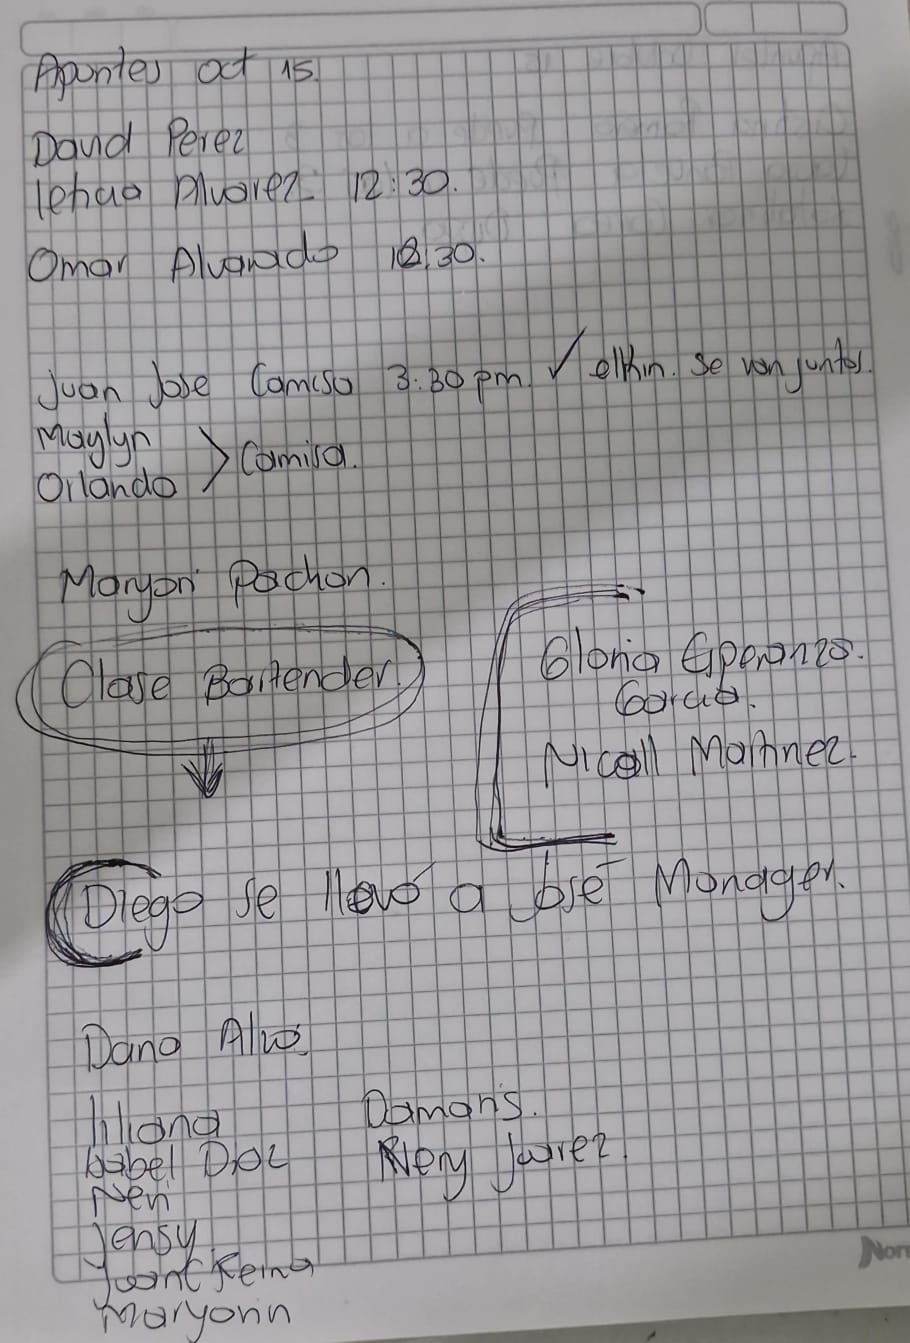 Apuntes oct 15.
David Perez
Alvarez 12:30.
Omar Alvarado 12:30.
Juan Jose Camisa 3:30 pm ✓ elkin. se van juntos.
Maylyn
Orlando > Camisa.
Maryori Pachon.
Clase Bartender.
Gloria Esperanza.
Garcia.
Nicoll Martinez.
Diego se llevó a José Manager.
Dana
liliana
Isabel Diaz
Neri
Jensy
Reina
Maryorin
Damaris.
Nery Juarez.
Nor